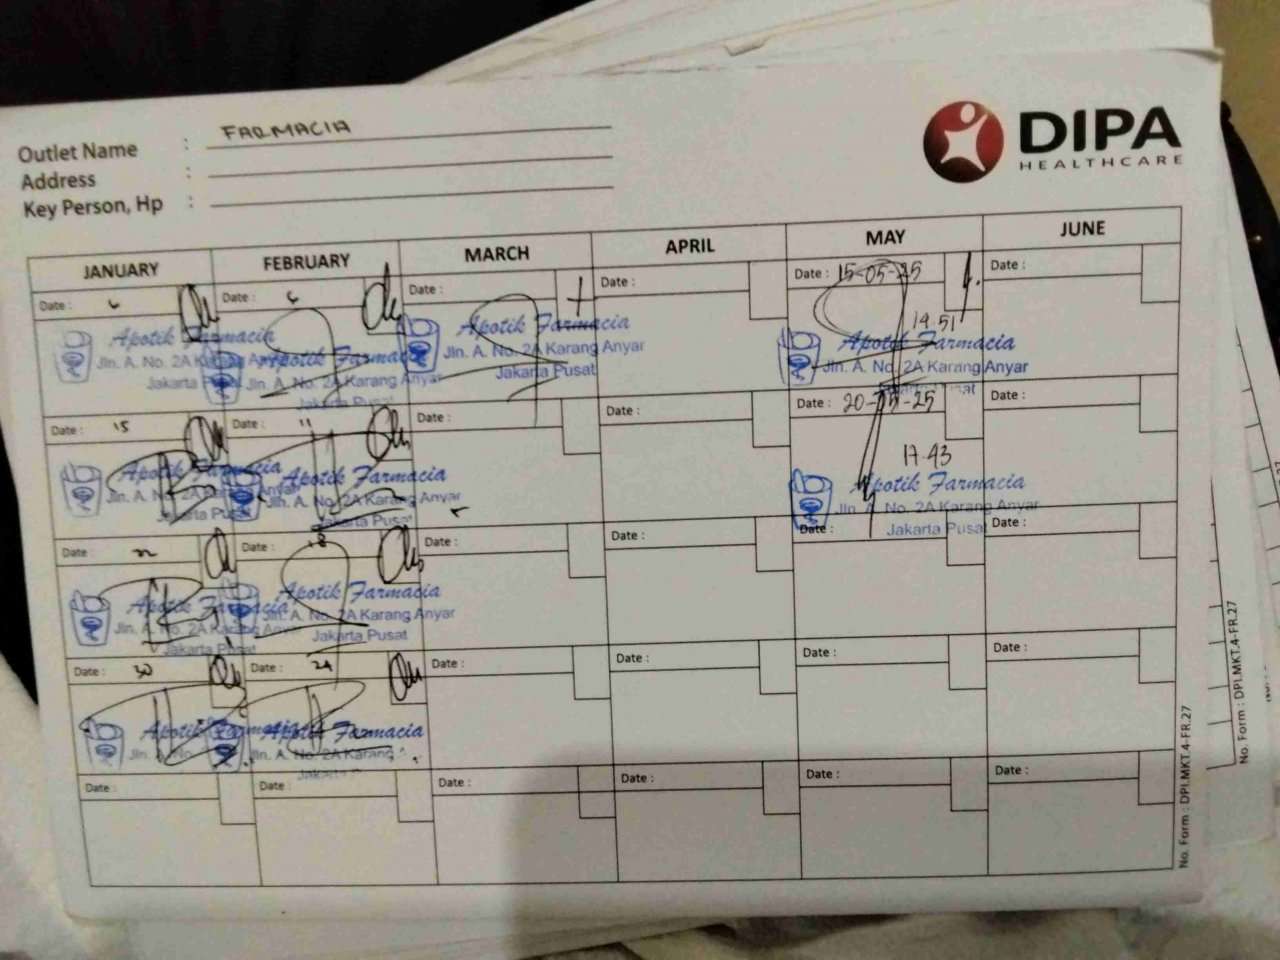 DIPA
HEALTHCARE
Outlet Name : FARMACIA
Address :
Key Person, Hp :
JANUARY FEBRUARY MARCH APRIL MAY JUNE
Date : 6 Date : 6 Date : Date : Date : 15-05-25 Date :
19.51
Apotik Farmacia
Jln. A. No. 2A Karang Anyar
Jakarta Pusat
Apotik Farmacia
Jln. A. No. 2A Karang Anyar
Jakarta Pusat
Apotik Farmacia
Jln. A. No. 2A Karang Anyar
Jakarta Pusat
Apotik Farmacia
Jln. A. No. 2A Karang Anyar
Date : 15 Date : 11 Date : Date : Date : 20-05-25 Date :
17.43
Apotik Farmacia
Jln. A. No. 2A Karang Anyar
Jakarta Pusat
Apotik Farmacia
Jln. A. No. 2A Karang Anyar
Jakarta Pusat
Apotik Farmacia
Jln. A. No. 2A Karang Anyar
Jakarta Pusat
Date : 22 Date : 18 Date : Date : Date : Date :
Apotik Farmacia
Jln. A. No. 2A Karang Anyar
Jakarta Pusat
Apotik Farmacia
Jln. A. No. 2A Karang Anyar
Jakarta Pusat
Date : 30 Date : 24 Date : Date : Date : Date :
Apotik Farmacia
Jln. A. No.
Apotik Farmacia
Jln. A. No. 2A Karang
Date : Date : Date : Date : Date : Date :
No. Form : DPI.MKT.4-FR.27
No. Form : DPI.MKT.4-FR.27